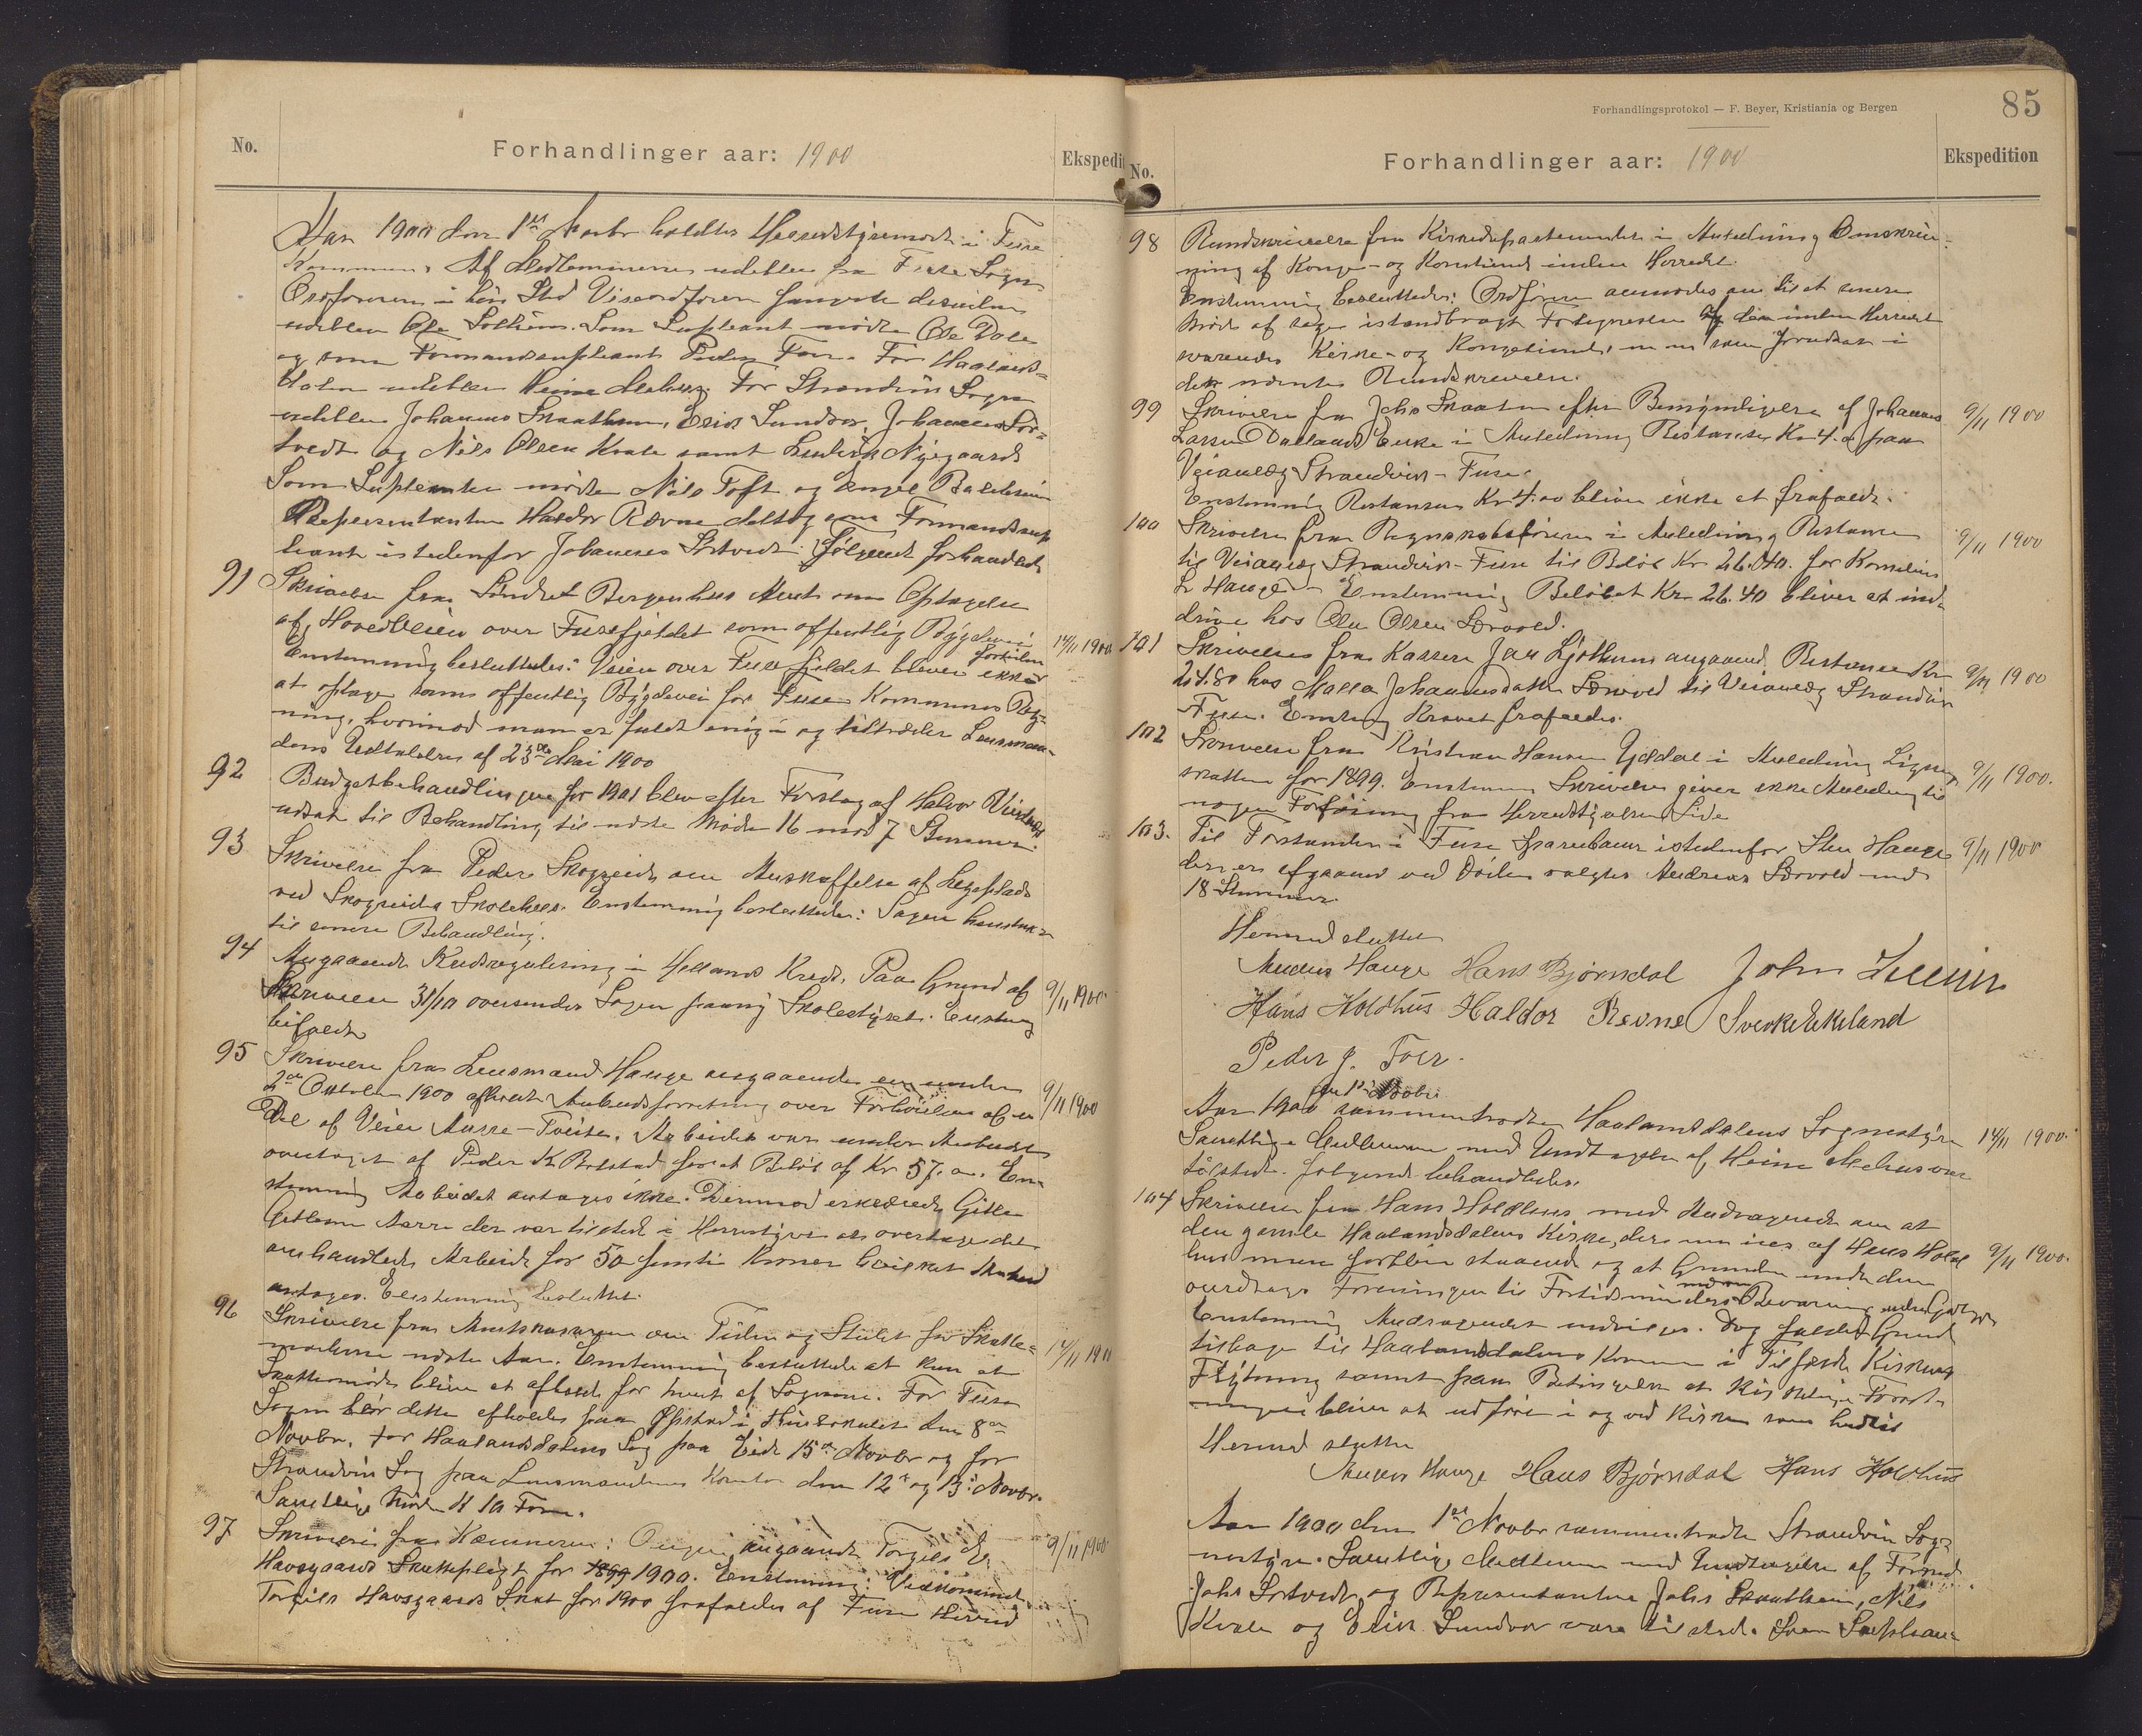 No.
Forhandlinger aar: 1900
Ekspedit
Aar 1900 den 1ste Novbr holdtes Herredstyremøde i Fuse
Kommune. Af Medlemmerne udeblev fra Fuse Sogn
Ordføreren i hans Sted Viseordføren fungerte desuden
udeblev Ole Solheim. Som Supleant mødte Ole Dale
og som Formandsupleant Peder Foer. For Haalands-
dalen udeblev Heine Mehus. For Strandvik Sogn
udeblev Johannes Skaathun, Erik Sundvor, Johannes Sør-
tvedt og Nils Olsen Kvale samt Nygaard
Som Supleanter mødte Nils Toft og Engel Baldersheim
Representanten Haldor Revne deltog som Formandsup
leant istedenfor Johannes Sørtvedt. Følgende forhandledes
91 Skrivelse fra Søndre Bergenhus Amt om Optagelse
af Hovedveien over Fusefjeldet som offentlig Bygdevei 14/11 1900
Enstemmig besluttedes: Veien over Fusefjeldet bliver ikke forinden
at optage som offentlig Bygdevei for Fuse Kommunes Reg-
ning, hvorimod man er fuldt enig i og tiltræder Lensman-
dens Udtalelse af 23de Mai 1900
92 Budgetbehandlingen for 1901 blev efter Forslag af Halvor
udsat til Behandling til næste Møde 16 mod 7 Stemmer.
93 Skrivelse fra Peder Skogseide om Anskaffelse af Legeplads
ved Skogseide Skolehus. Enstemmig besluttedes: Sagen henstilles
til senere Behandling.
94 Angaaende Kredsregulering i Helland Kreds. Paa Grund af
Skrivelse 31/10 oversendes Sagen paany Skolestyret. Enstemmig 9/11 1900
bifaldt
95 Skrivelse fra Lensmand Hauge angaaende en under
2den Oktober 1900 afholdt Anbudsforretning over Forhøielse af en 9/11 1900
Del af Veien Aarre-Tveite. Arbeidet var under Anbudet
overtaget af Peder K Bolstad for et Beløb af Kr 57.00. En-
stemmig Arbeidet antages ikke. Derimod erklærede Gitle
Gitlesen Aarre der var tilstede i Herredstyret at overtage det
omhandlede Arbeide for 50 femti Kroner hvilket Anbud
antages. Enstemmig besluttet.
96 Skrivelse fra Amtskassereren om Tiden og Stedet for Skatte-
møderne næste Aar. Enstemmig besluttedes at kun et 14/11 1900
Skattemøde bliver at afholde for hvert af Sognene. For Fuse
Sogn bør dette afholdes paa Øpstad i Thinglokalet den 8de
Novbr. For Haalandsdalens Sog paa Eide 15de Novbr og for
Strandvik Sog paa Lensmandens Kontor den 12te og 13de Novbr.
Samtlige Møder Kl 10 Form.
97 Skrivelse fra Kæmneren i angaaende Torgils E.
Havsgaards Skattepligt for 1899 1900. Enstemmig: Vedkommende 9/11 1900
Torgils Havsgaards Skat for 1900 frafaldes af Fuse Herred
Forhandlingsprotokol — F. Beyer, Kristiania og Bergen
85
No.
Forhandlinger aar: 1900
Ekspedition
98 Rundskrivelse fra Kirkedepartementet i Anledning Omskriv-
ning af Konge- og Korntiende inden Herredet.
Enstemmig besluttedes: Ordføreren anmodes om til et senere
Møde af søge istandbragt Fortegnelse over den inden Herredet
svarende Kirke- og Kongetiende, m m som forudsat i
den nævnte Rundskrivelse.
99 Skrivelse fra Johs Skaatun efter Bemyndigelse af Johannes 9/11 1900
Larsen Dalland Enke i Anledning Restanse Kr 4.00 paa
Veianlæg Strandvik-Fuse.
Enstemmig Restansen Kr 4.00 bliver ikke at frafalde.
100 Skrivelse fra Regnskabsføreren i Anledning Restance 9/11 1900
til Veianlæg Strandvik-Fuse til Beløb Kr 26.40. for Kornelius
L Hauge. Enstemmig Beløbet Kr 26.40 bliver at ind-
drive hos Ole Olsen Sævold.
101 Skrivelse fra Kasserer Jan Ljothum angaaende Restance Kr 9/11 1900
24.80 hos Malla Johannesdatter Sævold til Veianlæg Strandvik
Fuse. Enstemmig Kravet frafaldes.
102 Skrivelse fra Kristian Hansen Gjeldal i Anledning Ligning 9/11 1900.
skatten for 1899. Enstemmig Skrivelsen giver ikke Anledning til
nogen Forføining fra Herredstyrelsens Side
103. Til Forstander i Fuse Sparebank istedenfor Sten Hauge 9/11 1900
der er afgaaet ved Døden valgtes Andreas Sævold med
18 Stemmer.
Hermed sluttet
Anders Hauge Hans Bjørndal John
Hans Holdhus Haldor Revne Sverke Ekeland
Peder J. Foer.
den 1ste Novbr
Aar 1900 sammentraadte Haalandsdalens Sognestyre 14/11 1900.
Samtlige Medlemmer med Undtagelse af Heine Mehus var
tilstede. Følgende behandledes.
104 Skrivelse fra Hans Holdhus med Andragende om at
den gamle Haalandsdalens Kirke, der nu eies af Hans Hold 9/11 1900.
hus maa forblive staaende og at Grunden under den
overdrages Foreningen til Fortidsmindesmerkers Bevaring uden Godtgj
Enstemmig Andragendet indvilges. Dog falder Grund
tilbage til Haalandsdalens Kommune i Tilfælde Kirkens
Flytning samt paa Betingelse at kirkelige Forret-
ninger bliver at udføre i og ved Kirken som hidtil
Hermed sluttet
Anders Hauge Hans Bjørndal Hans Holdhus
Aar 1900 den 1ste Novbr sammentraadte Strandvik Sog-
nestyre. Samtlige Medlemmer med Undtagelse af Formand
Johs Sørtvedt og Representanterne Johs Skaathun, Nils
Kvale og Erik Sundvor vare tilstede. Som Suplean-